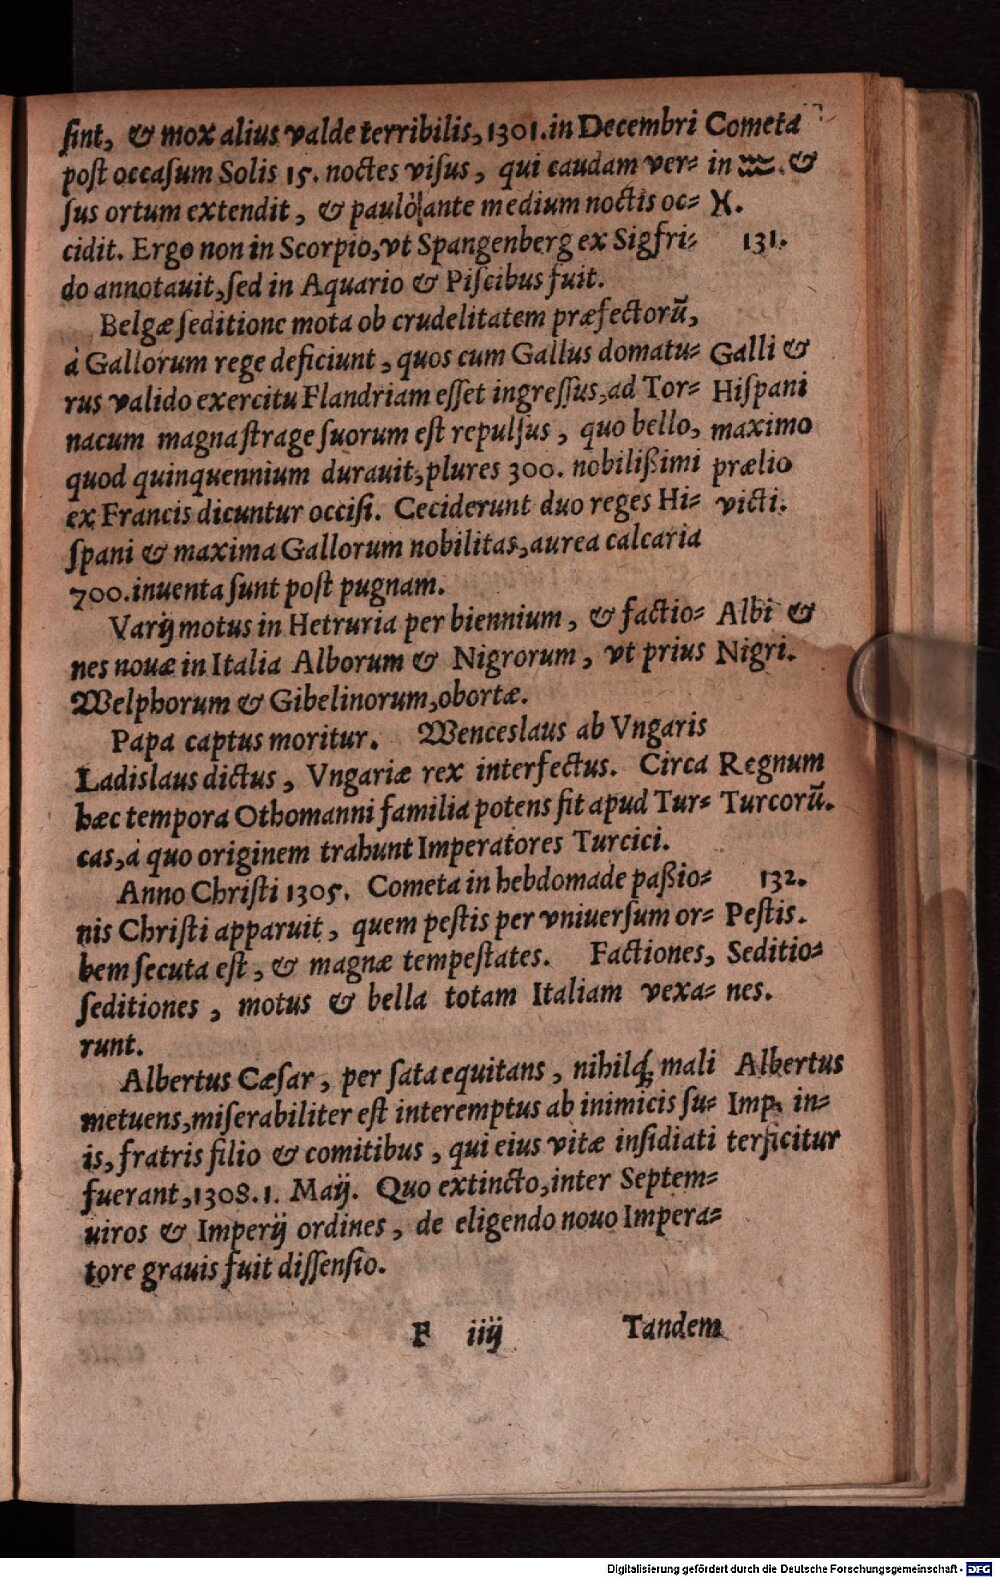 ſint, & mox alius valde terribilis, 1301. in Decembri
post occaſum Solis 15. noctes viſus, qui caudam ver=
ſus ortum extendit, & paulò ante medium noctis oc=
cidit. Ergo non in Scorpio, vt Spangenberg ex Sigfri=
do annotauit, ſed in Aquario & Piſcibus fuit.
Cometa
in ♒. &
♓.
131.
Belgæ ſeditione mota ob crudelitatem præfectorũ,
à Gallorum rege deficiunt, quos cum Gallus domatu=
rus valido exercitu Flandriam eſſet ingreſſus, ad Tor=
nacum magna ſtrage ſuorum eſt repulſus, quo bello,
quod quinquennium durauit, plures 300. nobilißimi
ex Francis dicuntur occiſi. Ceciderunt duo reges Hi=
ſpani & maxima Gallorum nobilitas, aurea calcaria
700. inuenta ſunt poſt pugnam.
Galli &
Hiſpani
maximo
prælio
victi.
Varij motus in Hetruria per biennium, & factio=
nes nouæ in Italia Alborum & Nigrorum, vt prius
Welphorum & Gibelinorum, obortæ.
Albi &
Nigri.
Papa captus moritur. Wenceslaus ab Vngaris
Ladislaus dictus, Vngariæ rex interfectus. Circa
hæc tempora Othomanni familia potens fit apud Tur=
cas, à quo originem trahunt Imperatores Turcici.
Regnum
Turcorũ.
Anno Chriſti 1305. Cometa in hebdomade paßio=
nis Chriſti apparuit, quem peſtis per vniuerſum or=
bem ſecuta eſt, & magnæ tempeſtates. Factiones,
ſeditiones, motus & bella totam Italiam vexa=
runt.
132.
Peſtis.
Seditio=
nes.
Albertus Cæſar, per ſata equitans, nihilq́; mali
metuens, miſerabiliter eſt interemptus ab inimicis ſu=
is, fratris filio & comitibus, qui eius vitæ inſidiati
fuerant, 1308. 1. Maij. Quo extincto, inter Septem=
uiros & Imperij ordines, de eligendo nouo Impera=
tore grauis fuit diſſenſio.
Albertus
Imp. in=
terficitur
F iiij Tandem
Digitalisierung gefördert durch die Deutsche Forschungsgemeinschaft - DFG